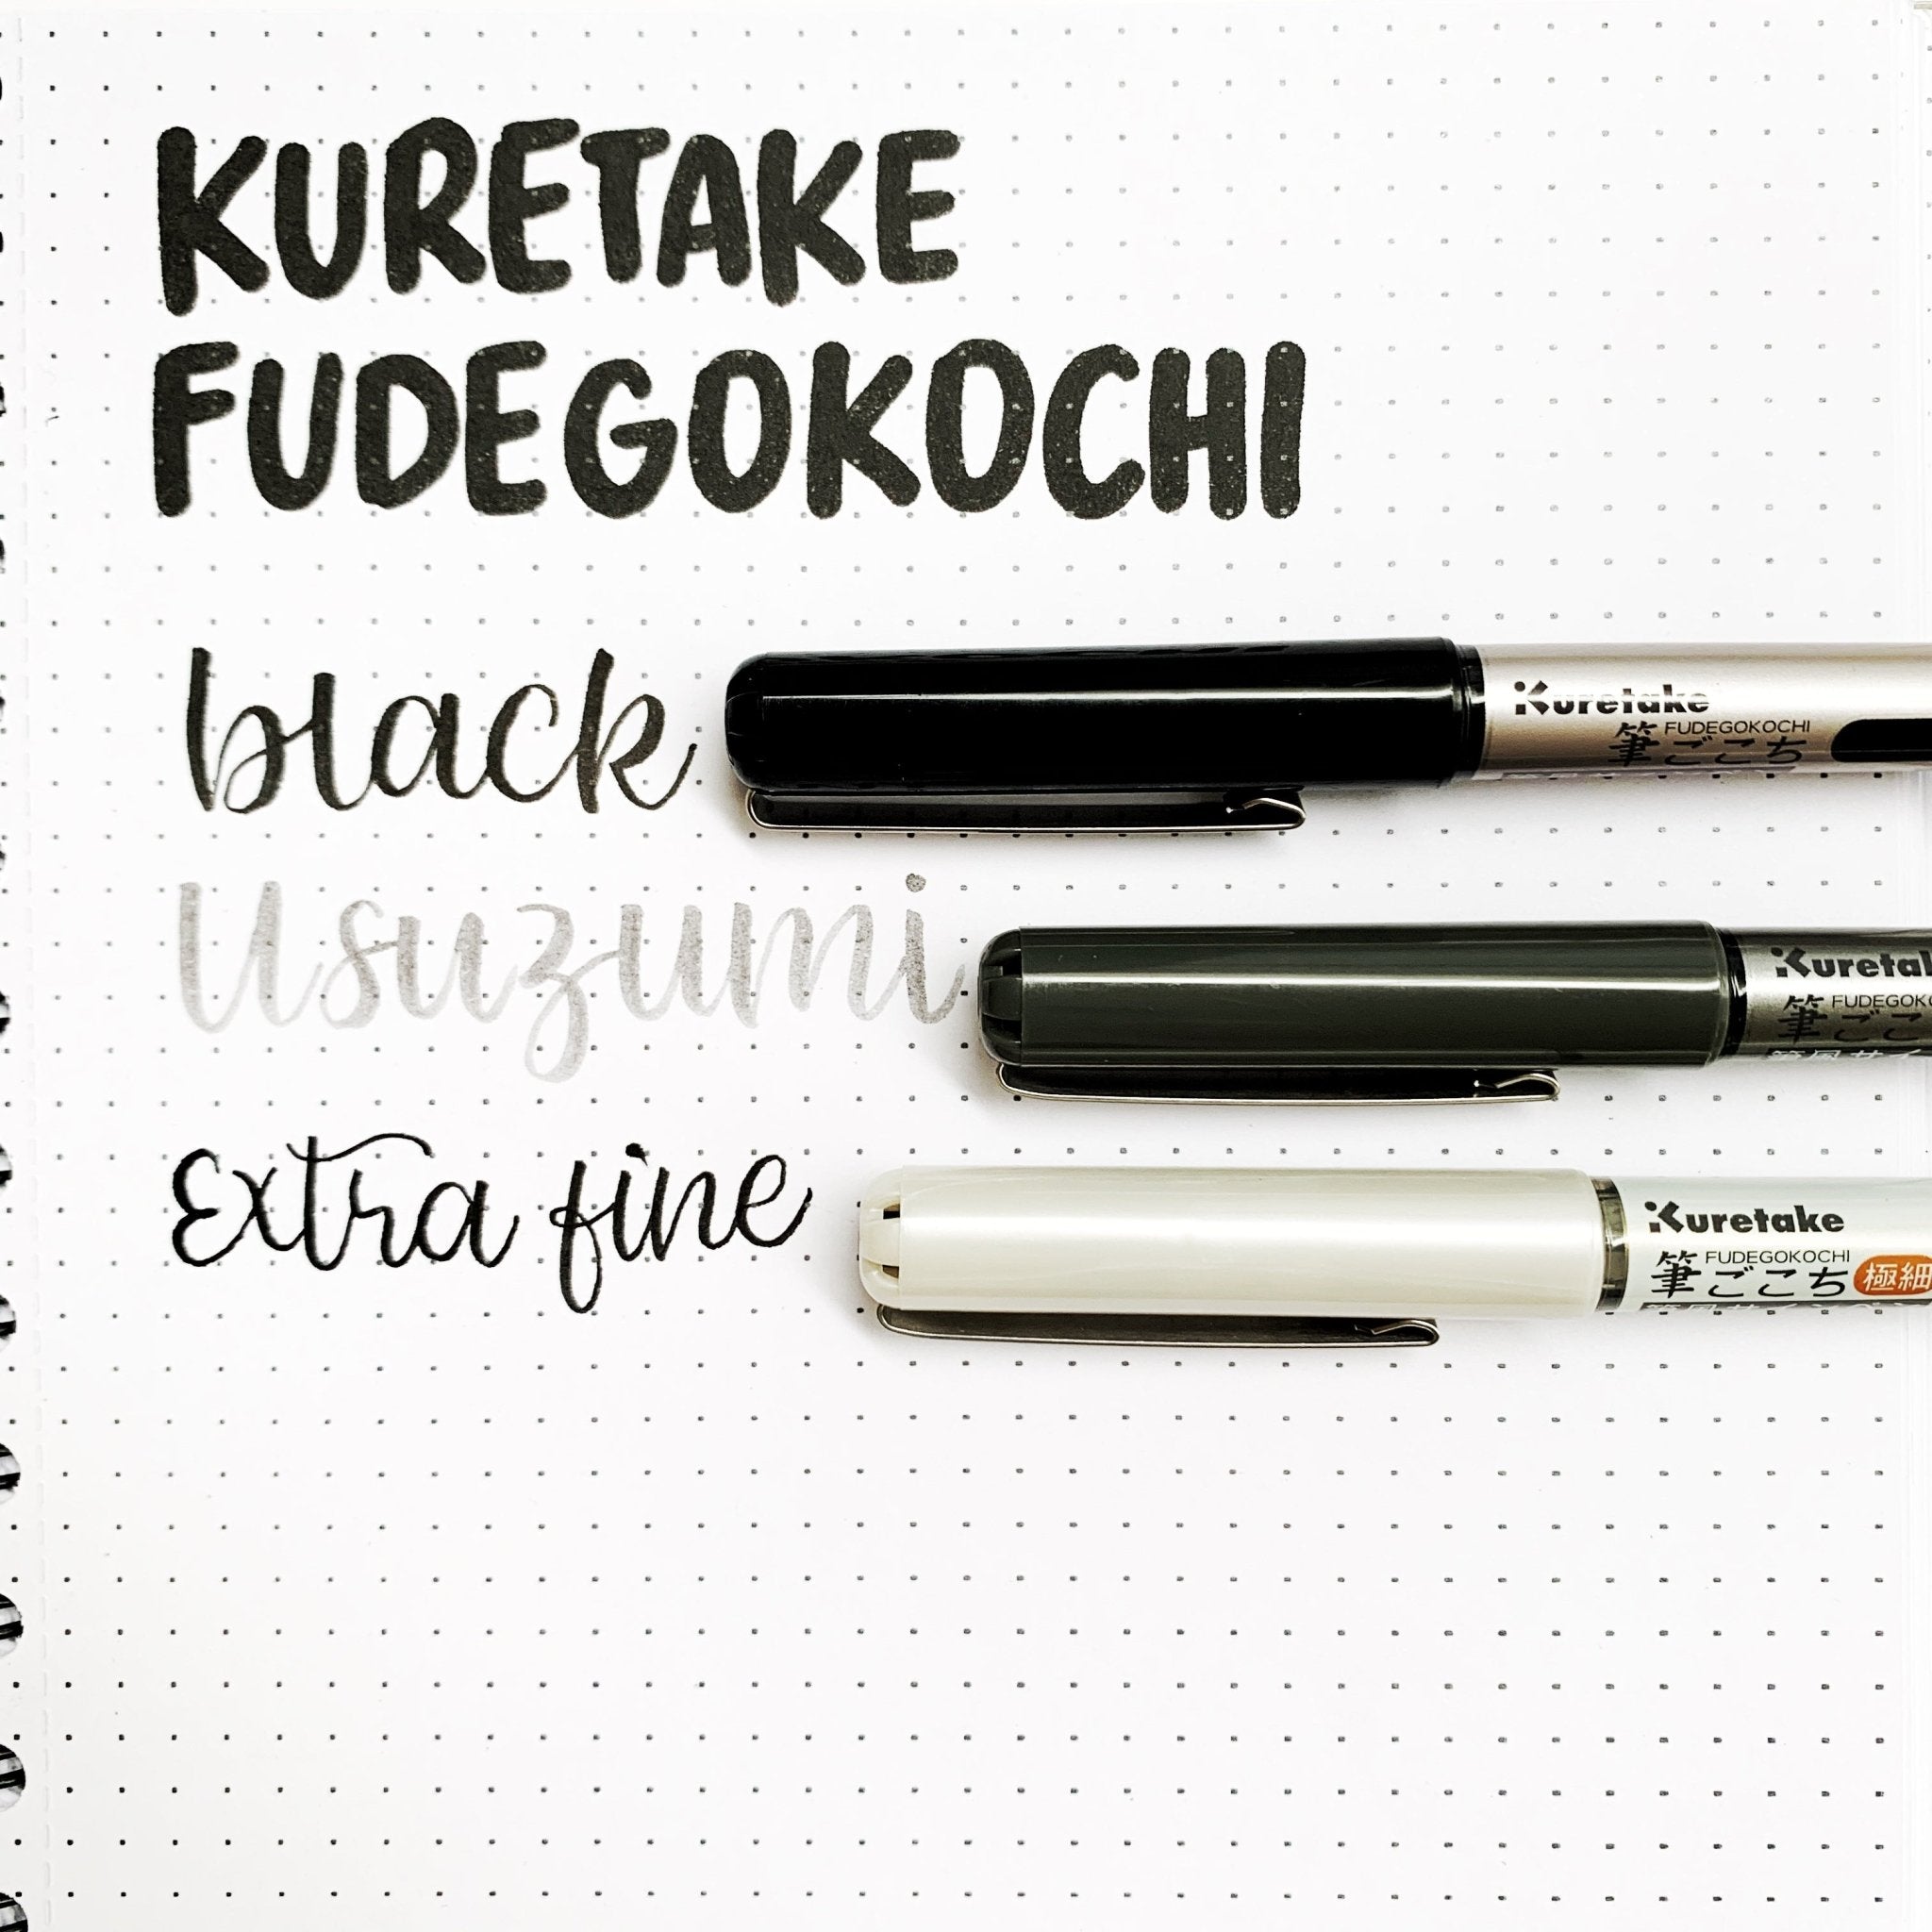 KURETAKE
FUDEGOKOCHI
black
Kuretake
FUDEGOKOCHI
筆ごこち
Usuzumi
Kuretak
FUDEGOKO
筆ごこ
Extra fine
Kuretake
FUDEGOKOCHI
筆ごこち 極細